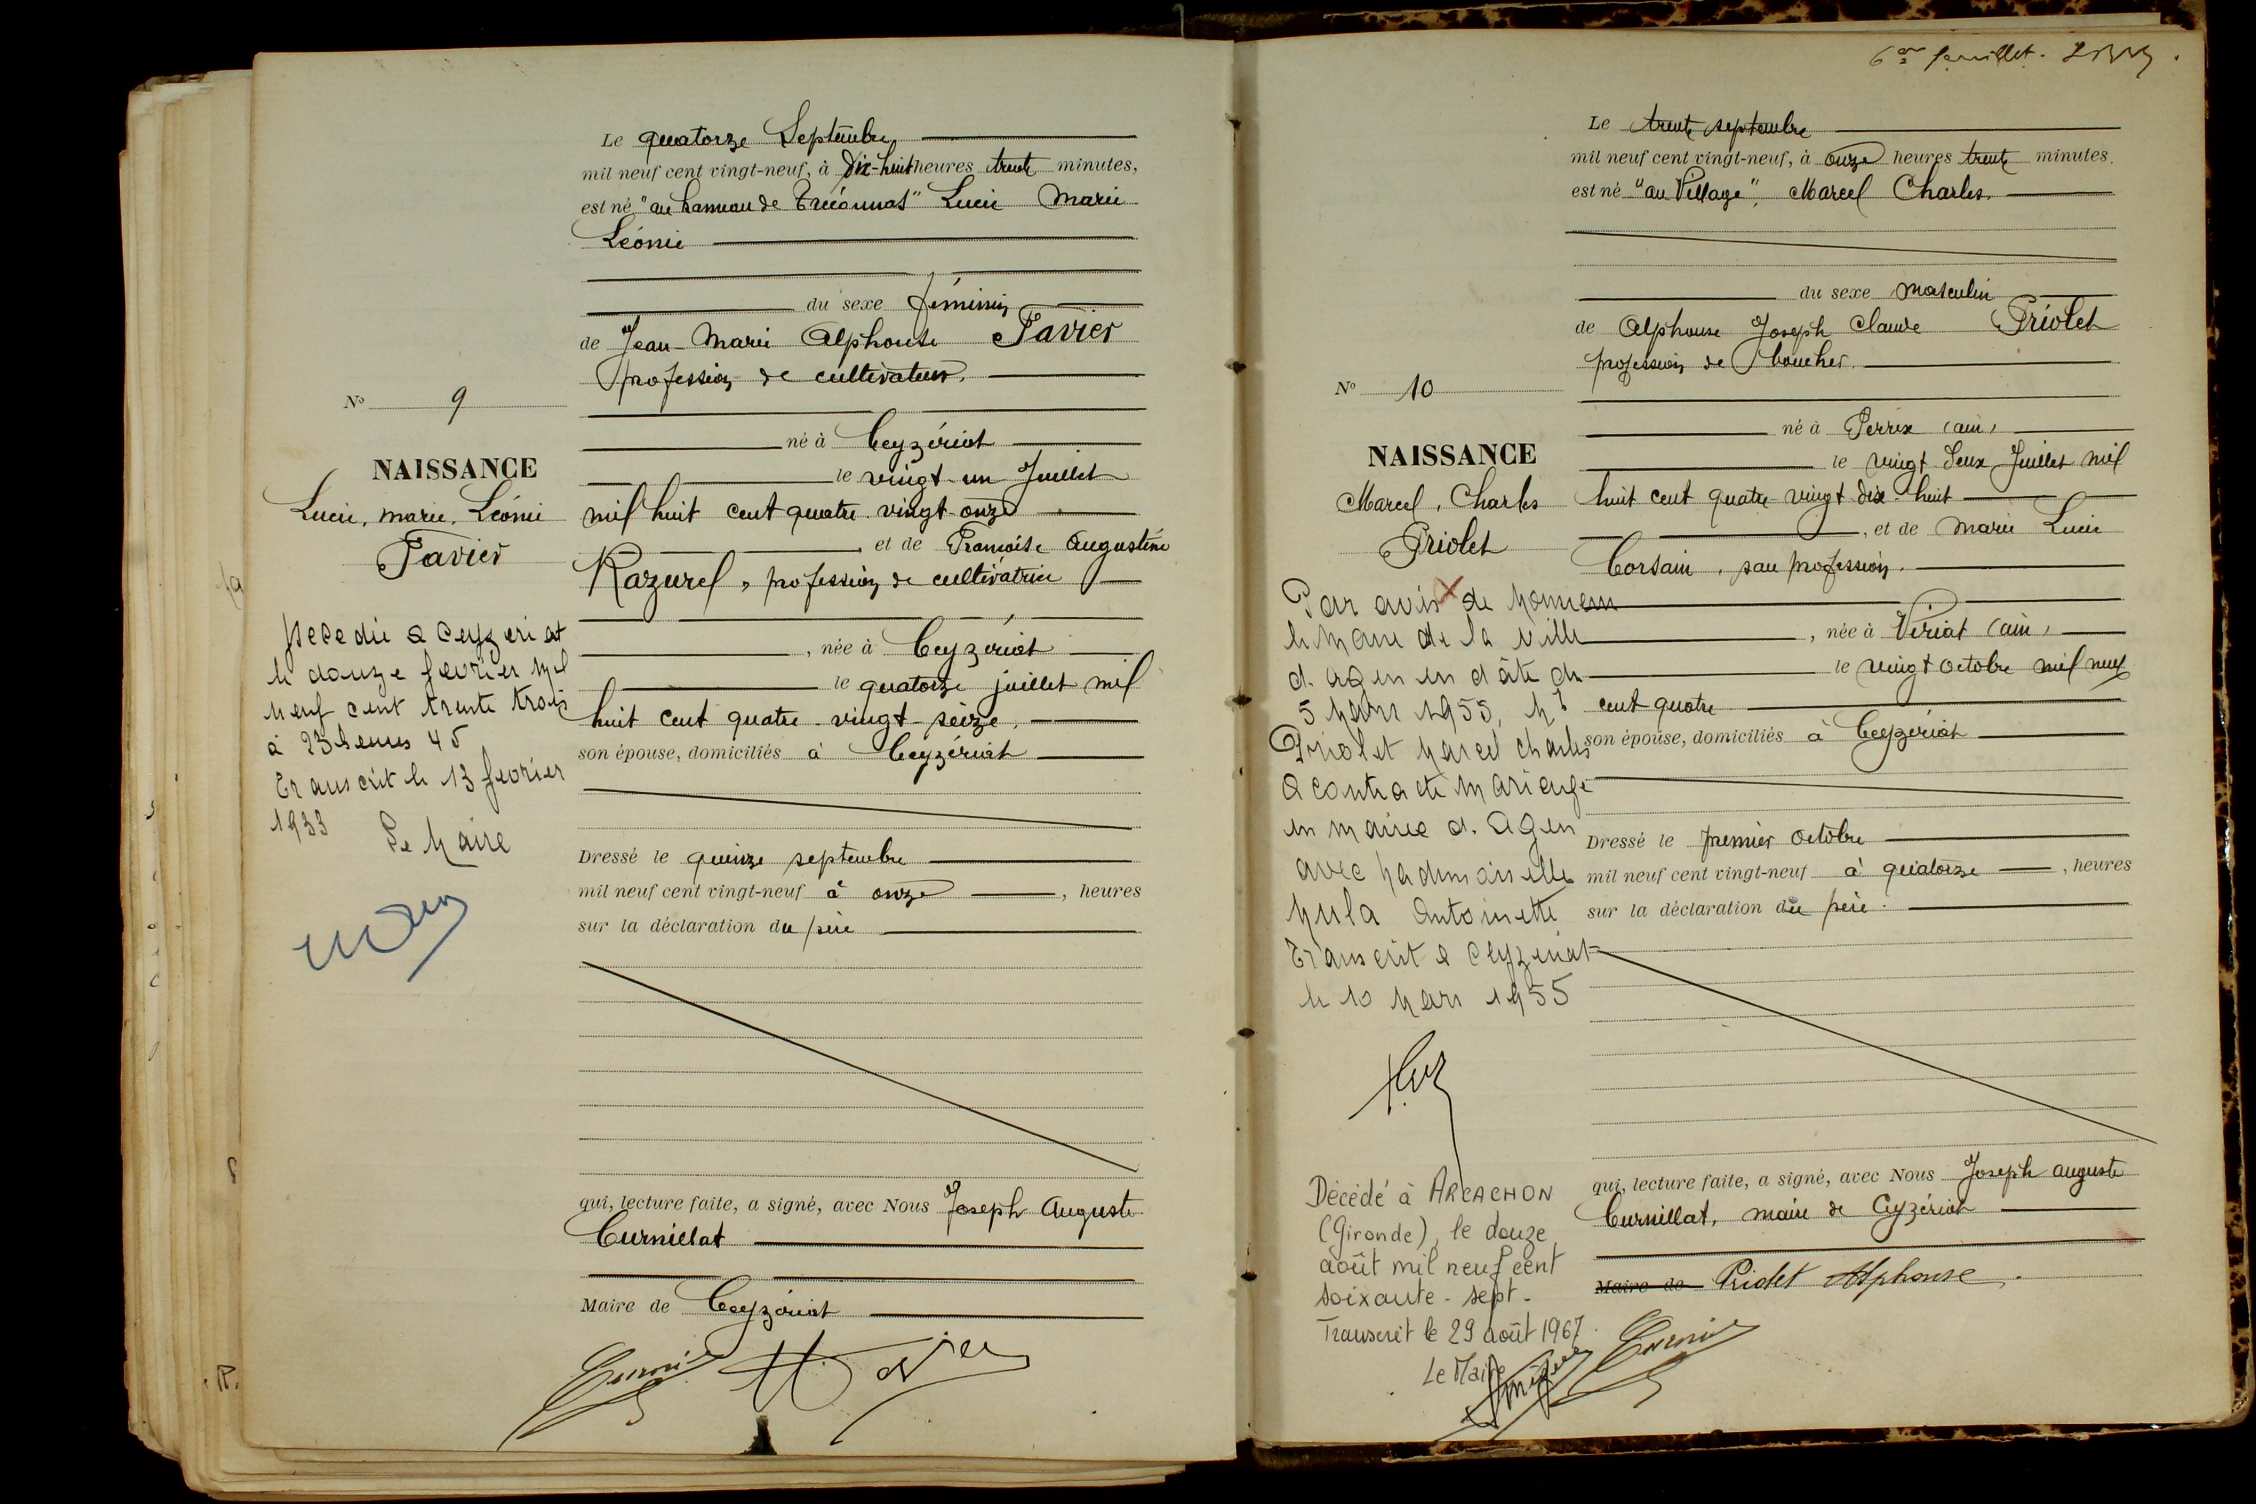 Le quatorze Septembre
mil neuf cent vingt-neuf, à Dix-huit heures trente minutes,
est né "au hameau de Tréconnas" Lucie Marie
Léonie
du sexe féminin
de Jean-Marie Alphonse Favier
profession de cultivateur.
né à Ceyzériat
le vingt-un Juillet
mil huit cent quatre-vingt-onze
et de Françoise Augustine
Razurel, profession de cultivatrice
, née à Ceyzériat
le quatorze juillet mil
huit cent quatre-vingt-seize,
son épouse, domiciliés à Ceyzériat
Dressé le quinze septembre
mil neuf cent vingt-neuf à onze, heures
sur la déclaration du père
qui, lecture faite, a signé, avec Nous Joseph Auguste
Curnillat
Maire de Ceyzériat
No 9
NAISSANCE
Lucie, Marie, Léonie
Favier
Décédée à Ceyzeriat
le douze fevrier Mil
Neuf cent trente trois
à 23 heures 45
Transcrit le 13 fevrier
1933
Le Maire
6e feuillet.
Le trente septembre
mil neuf cent vingt-neuf, à onze heures trente minutes.
est né "au Village", Marcel Charles.
du sexe masculin
de Alphonse Joseph Claude Priolet
profession de boucher.
né à Perrex (ain)
le vingt deux Juillet mil
huit cent quatre-vingt dix-huit
, et de Marie Lucie
Corsain, sans profession.
, née à Viriat (ain)
le vingt Octobre mil neuf
cent quatre
son épouse, domiciliés à Ceyzériat
Dressé le premier Octobre
mil neuf cent vingt-neuf à quatorze, heures
sur la déclaration du père.
qui, lecture faite, a signé, avec Nous Joseph Auguste
Curnillat, maire de Ceyzériat
Maire de Priolet Alphonse.
No 10
NAISSANCE
Marcel, Charles
Priolet
Par avis de Monsieur
le Maire de la ville
d'Agen en date du
5 Mars 1955, Mr
Priolet Marcel Charles
a contracté Mariage
en Mairie d'Agen
avec Mademoiselle
Mula Antoinette
Transcrit à Ceyzeriat
le 10 Mars 1955
Décédé à ARCACHON
(Gironde), le douze
août mil neuf cent
soixante-sept-
Transcrit le 29 août 1967.
Le Maire